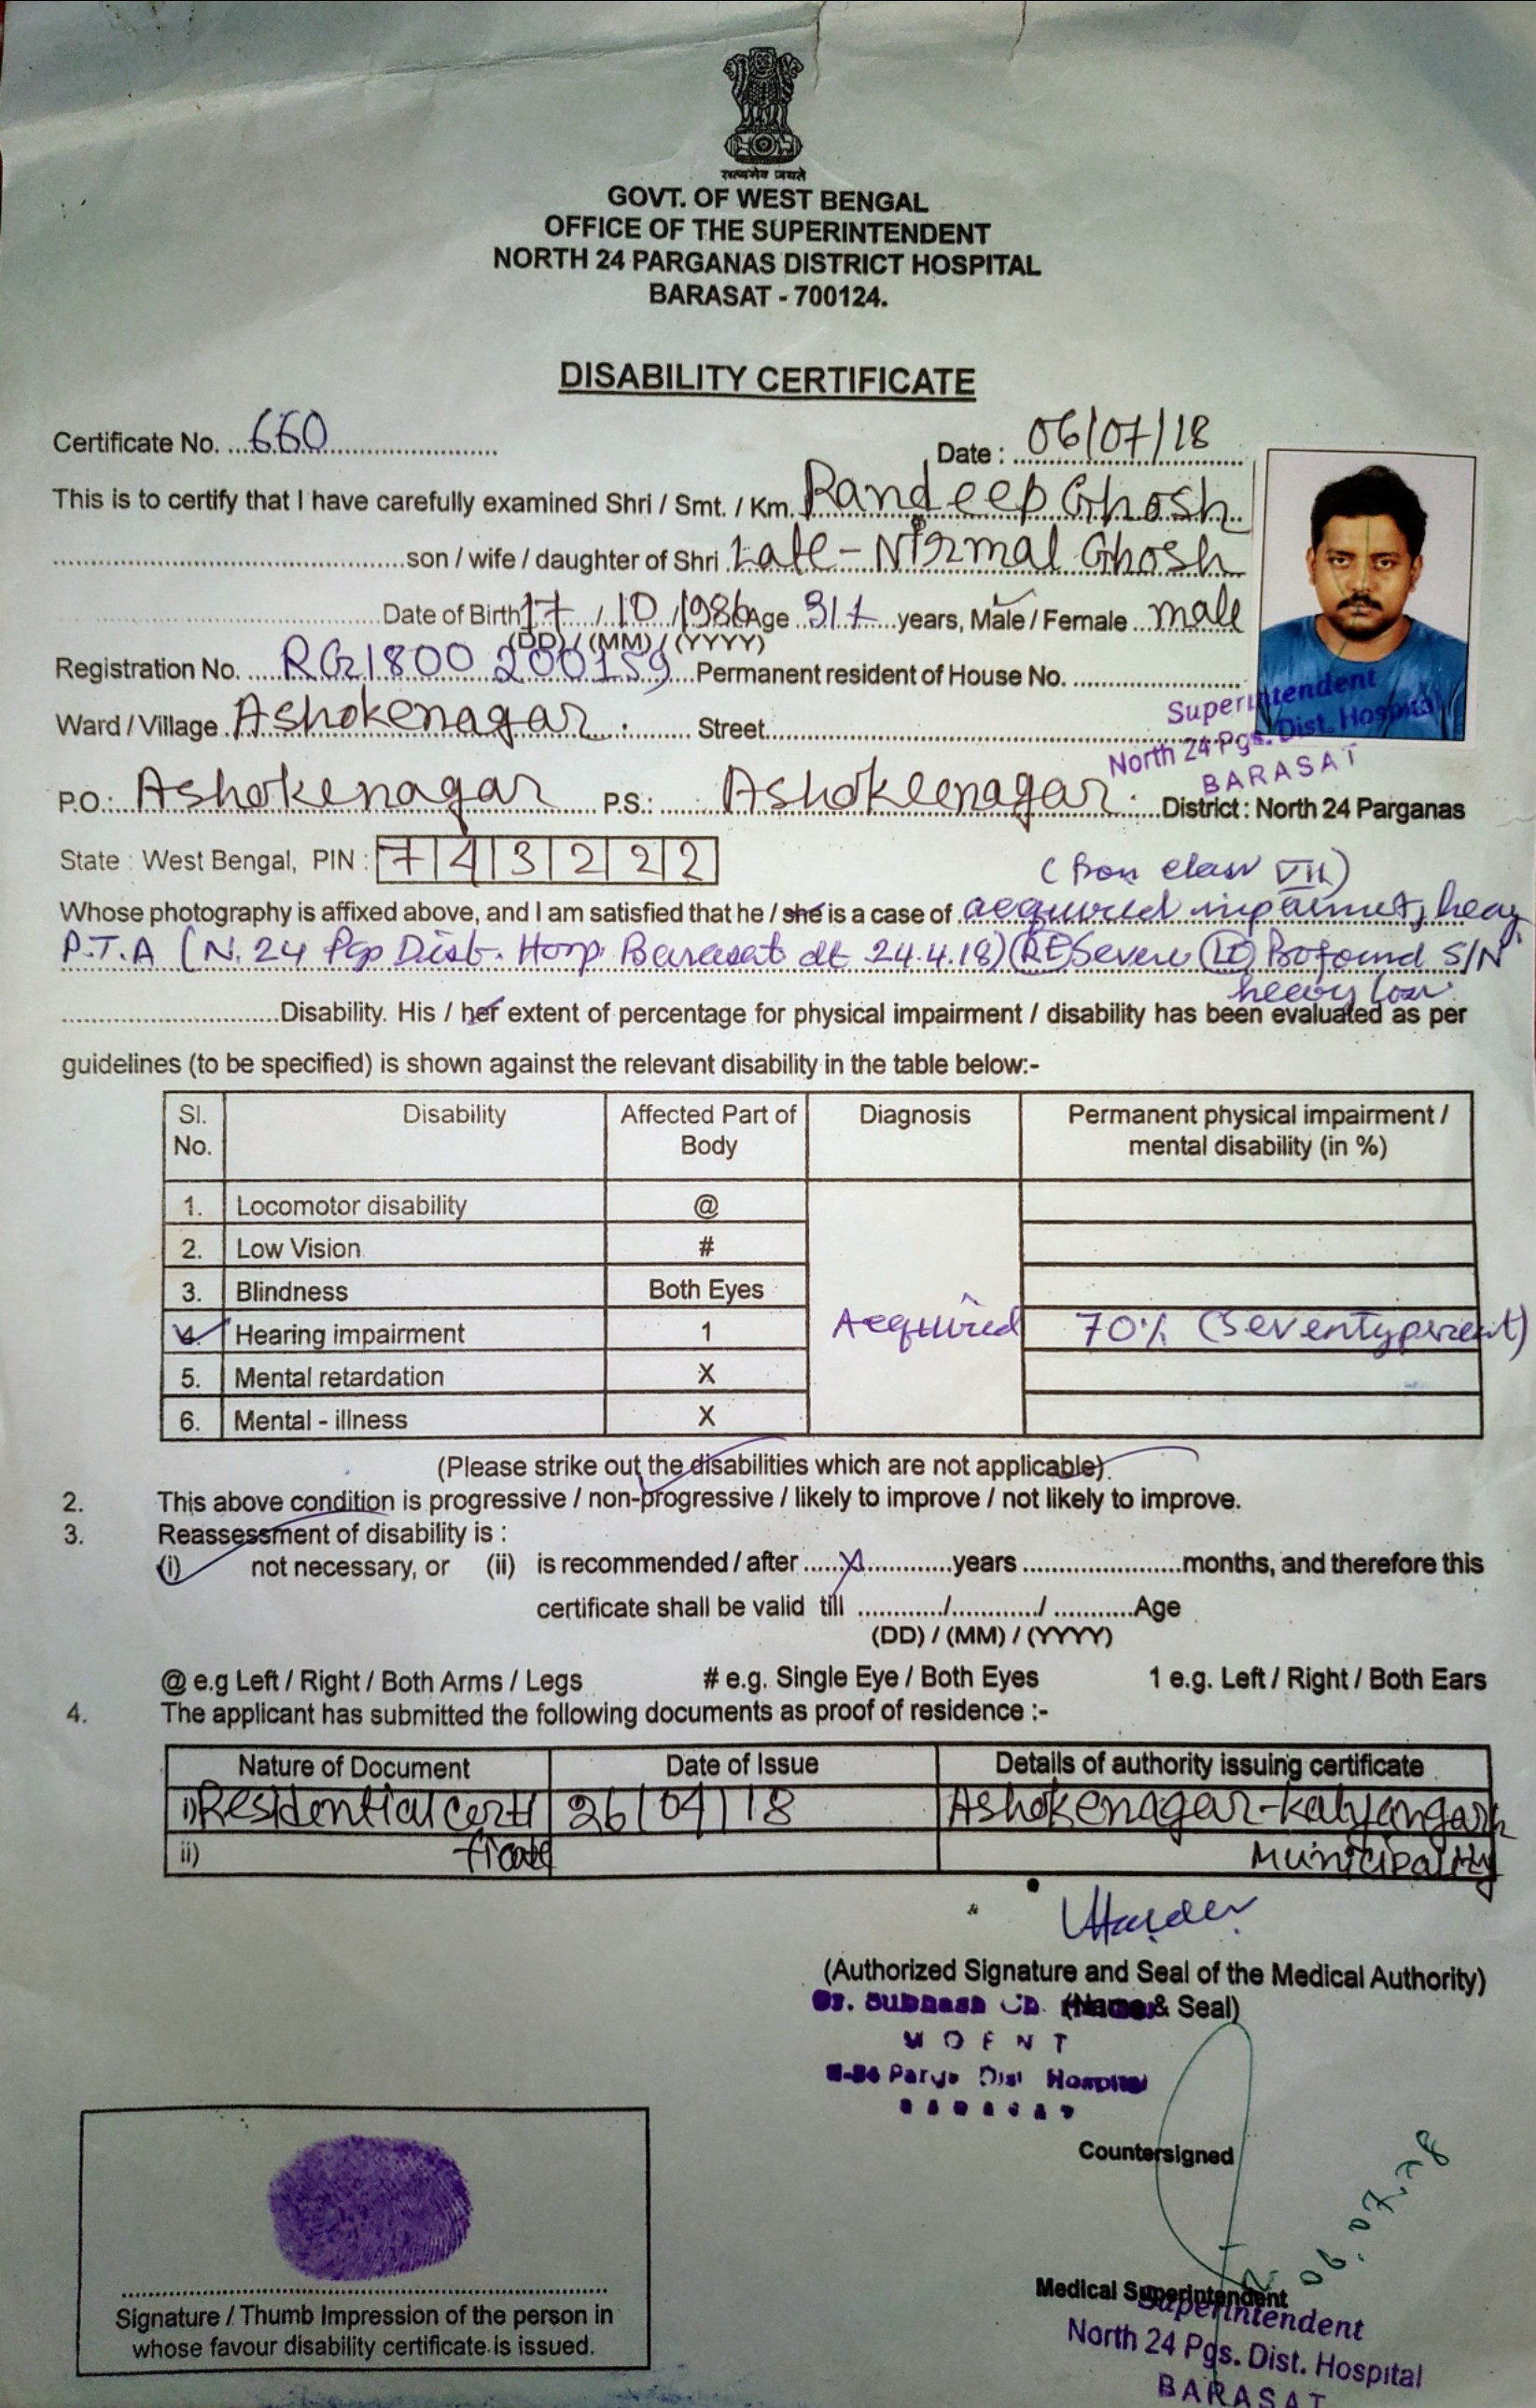 सत्यमेव जयते
GOVT. OF WEST BENGAL
OFFICE OF THE SUPERINTENDENT
NORTH 24 PARGANAS DISTRICT HOSPITAL
BARASAT - 700124.
DISABILITY CERTIFICATE
Certificate No. 660
Date : 06/07/18
This is to certify that I have carefully examined Shri / Smt. / Km. Randeep Ghosh
son / wife / daughter of Shri Late - Nirmal Ghosh
Date of Birth 17 / 10 / 1986 Age 31+ years, Male / Female male
(DD) / (MM) / (YYYY)
Registration No. RG1800 200159 Permanent resident of House No.
Ward / Village Ashokenagar Street
Superintendent
North 24 Pgs. Dist. Hospital
BARASAT
P.O.: Ashokenagar P.S.: Ashokeenagar District : North 24 Parganas
State : West Bengal, PIN : 743222
( class VII)
Whose photography is affixed above, and I am satisfied that he / she is a case of acquired
P.T.A (N. 24 Dist. Hosp. Barasat dt 24.4.18) (RE) Severe S/N
Disability. His / her extent of percentage for physical impairment / disability has been evaluated as per
guidelines (to be specified) is shown against the relevant disability in the table below:-
Sl. No. Disability Affected Part of Body Diagnosis Permanent physical impairment / mental disability (in %)
1. Locomotor disability @
2. Low Vision #
3. Blindness Both Eyes
4. Hearing impairment 1 Acquired 70% (Seventy percent)
5. Mental retardation X
6. Mental - illness X
(Please strike out the disabilities which are not applicable).
2. This above condition is progressive / non-progressive / likely to improve / not likely to improve.
3. Reassessment of disability is :
(i) not necessary, or (ii) is recommended / after X years months, and therefore this
certificate shall be valid till / / Age
(DD) / (MM) / (YYYY)
@ e.g Left / Right / Both Arms / Legs # e.g. Single Eye / Both Eyes 1 e.g. Left / Right / Both Ears
4. The applicant has submitted the following documents as proof of residence :-
Nature of Document Date of Issue Details of authority issuing certificate
i) Residential certi 26/04/18 Ashokenagar-Kalyangarh
ii) ficate Municipality
(Authorized Signature and Seal of the Medical Authority)
Dr. Subhash Ch. (Name & Seal)
M O E N T
N-24 Pargs Dist Hospital
BARASAT
Countersigned
Medical Superintendent
Superintendent
North 24 Pgs. Dist. Hospital
BARASAT
Signature / Thumb Impression of the person in
whose favour disability certificate is issued.